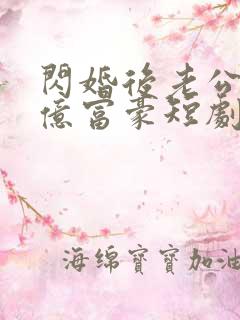 閃婚後老公
億富豪短劇
海绵寶寶加油